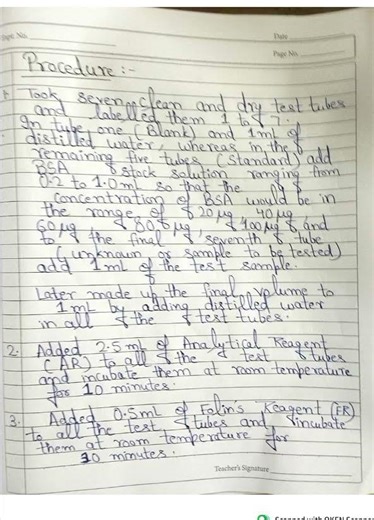 Page No.
Date
Page No.
Procedure :-
1. Took seven clean and dry test tubes
and labelled them 1 to 7.
In tube one (Blank) and 1ml of
distilled water, whereas in the
remaining five tubes (Standard) add
BSA stock solution ranging from
0.2 to 1.0ml so that the
concentration of BSA would be in
the range of 20 µg 40 µg
60 µg 80 µg, 100 µg and
to the final seventh tube
(unknown or sample to be tested)
add 1ml of the test sample.
Later made up the final volume to
1ml by adding distilled water
in all the test tubes.
2. Added 2.5ml of Analytical Reagent
(AR) to all the test tubes
and incubate them at room temperature
for 10 minutes.
3. Added 0.5ml of Folin's Reagent (FR)
to all the test tubes and incubate
them at room temperature for
30 minutes.
Teacher's Signature
Scanned with OKEN Scanner